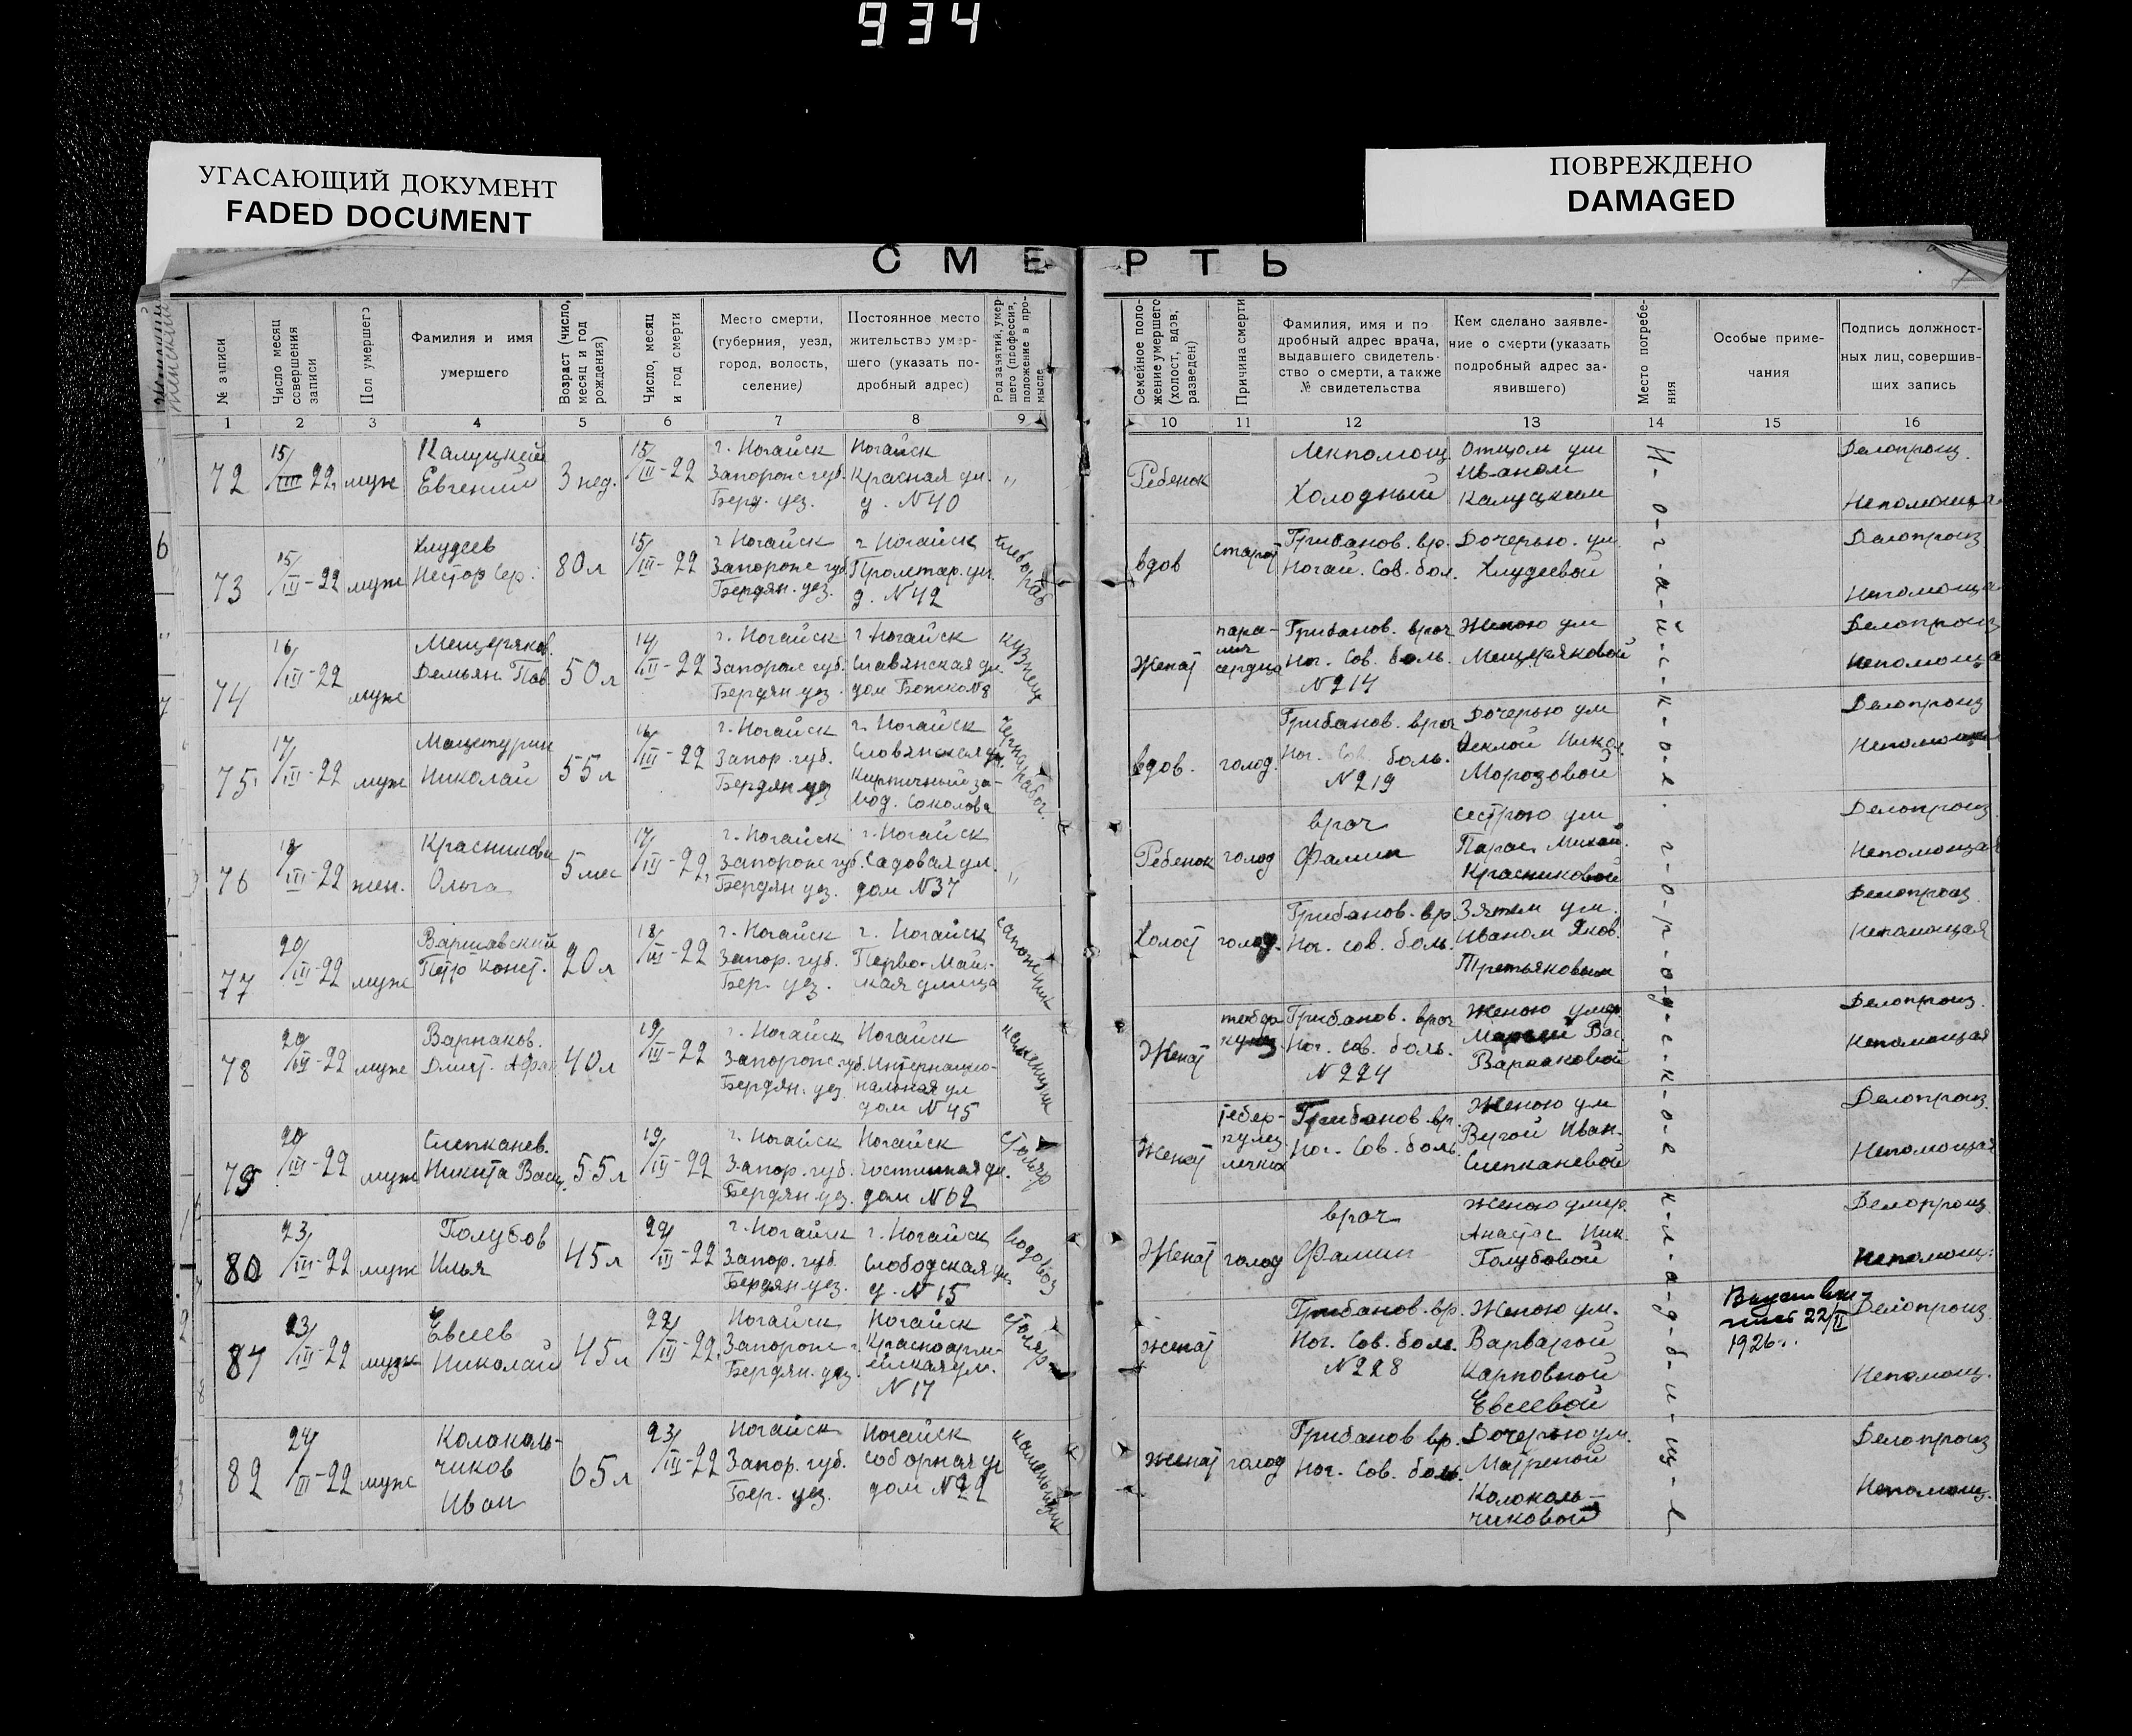 934
УГАСАЮЩИЙ ДОКУМЕНТ
FADED DOCUMENT
ПОВРЕЖДЕНО
DAMAGED
СМЕРТЬ
№ записи
Число месяц
совершения
записи
Пол умершего
Фамилия и имя
умершего
Возраст (число,
месяц и год
рождения)
Число, месяц
и год смерти
Место смерти,
(губерния, уезд,
город, волость,
селение)
Постоянное место
жительство умер-
шего (указать по-
дробный адрес)
Род занятий, умер-
шего (профессия,
положение в про-
мысле
Семейное поло-
жение умершего
(холост, вдов,
разведен)
Причина смерти
Фамилия, имя и по
дробный адрес врача,
выдавшего свидетель-
ство о смерти, а также
№ свидетельства
Кем сделано заявле-
ние о смерти (указать
подробный адрес за-
явившего)
Место погребе-
ния
Особые приме-
чания
Подпись должност-
ных лиц, совершив-
ших запись
1 2 3 4 5 6 7 8 9 10 11 12 13 14 15 16
72
15/III 22.
муж
Калуцкий
Евгений
3 нед.
15/III-22
г. Ногайск
Запорож губ.
Берд. уез.
Ногайск
Красная ул.
д. N 40
"
Ребенок
Лекпомощ
Холодный
Отцом ум
Иваном
Калуцким
Делопроиз.
Непомощая
73
15/III-22
муж
Хлудеев
Нестор Сер.
80 л
15/III-22
г Ногайск
Запорож губ.
Бердян. уез.
г. Ногайск
Пролетар. ул.
д. N 42
вдов
Грибанов. вр.
Ногай. Сов. бол.
Дочерью. ум.
Хлудеевой
Делопроиз
Непомощая
74
16/III-22
муж
Мещеряков.
Демьян Пав
50 л
14/III-22
г. Ногайск
Запорож губ.
Бердян уез.
г. Ногайск
Славянская ул.
дом Божко N 8
кузнец
Женат
пара-
лич
сердца
Грибанов. врач
Ног. Сов. боль.
N 214
Женою ум
Мещеряковой
Делопроиз
Непомощая
75.
17/III-22
муж
Николай
55 л
16/III-22
г. Ногайск
Запор. губ.
Бердян уез
г. Ногайск
Словянская ул.
Кирпичный за-
вод. Соколова
вдов.
голод.
Грибанов. врач
Ног. Сов боль.
N 219
Дочерью ум
Феклой Никол.
Морозовой
Делопроиз
Непомощая
76
18/III-22
жен.
Красникова
Ольга
5 мес
17/III-22.
г. Ногайск
Запорож губ.
Бердян уез.
г. Ногайск
Садовая ул.
дом N 37
"
Ребенок
голод
врач
Фалин
Сестрою ум
Парас. Михай.
Красниковой
Делопроиз.
Непомощая
77
20/III-22
муж
Варшавский
Петр Конст.
20 л
18/III-22
г. Ногайск
Запор. губ.
Бер. уез.
г. Ногайск
Перво-Май-
кая улица
сапожник
Холост
голод.
Грибанов. вр.
Ног. Сов. боль.
Зятем ум.
Иваном Яков.
Третьяковым
Делопроиз.
Непомощая
78
20/III-22
муж
Варнаков.
Дмит. Афа
40 л
19/III-22
г. Ногайск
Запорож. губ.
Бердян. уез.
Ногайск
Интернацио-
нальная ул
дом N 45
каменщик
Женат
Грибанов. врач
Ног. Сов. боль.
N 224
Женою умер.
Марьей Вас
Варнаковой
Делопроиз.
Непомощая
79
20/III-22
муж
Слепканев.
Никита Васил.
55 л
19/III-22
г. Ногайск
Запор. губ.
Бердян. уез.
Ногайск
Гостинная ул.
дом N 62
столяр
Женат
тебер-
кулез
легких
Грибанов вр.
Ног. Сов. боль.
Женою ум
Верой Иван.
Слепканевой
Делопроиз.
Непомощая
80
23/III-22
муж
Голубов
Илья
45 л
22/III-22
г. Ногайск
Запор. губ.
Бердян. уез.
г. Ногайск
Слободская ул.
д. N 15
водовоз
Женат
голод
врач
Фалин
Женою умер.
Анастас Ник.
Голубовой
Делопроиз.
Непомощ.
81
23/III-22
муж
Евсеев
Николай
45 л
22/III-22.
Ногайск
Запорож г.
Бердян. уез.
Ногайск
Красноарм-
ейская ул.
N 17
столяр
женат
Грибанов. вр.
Ног. Сов. боль.
N 228
Женою ум.
Варварой
Карповной
Евсеевой
22/II
1926 г.
Делопроиз
Непомощ.
82
24/III-22
муж
Колоколь-
чиков
Иван
65 л
23/III-22
Ногайск
Запор. губ.
Бер. уез.
Ногайск
Соборная ул
дом N 22
каменьщик
женат
голод
Грибанов вр.
Ног. Сов. боль.
Дочерью ум.
Матреной
Колоколь-
чиковой
Делопроиз
Непомощ.
Н-о-г-а-й-с-к-о-е. г-о-р-о-д-с-к-о-е к-л-а-д-б-и-щ-е